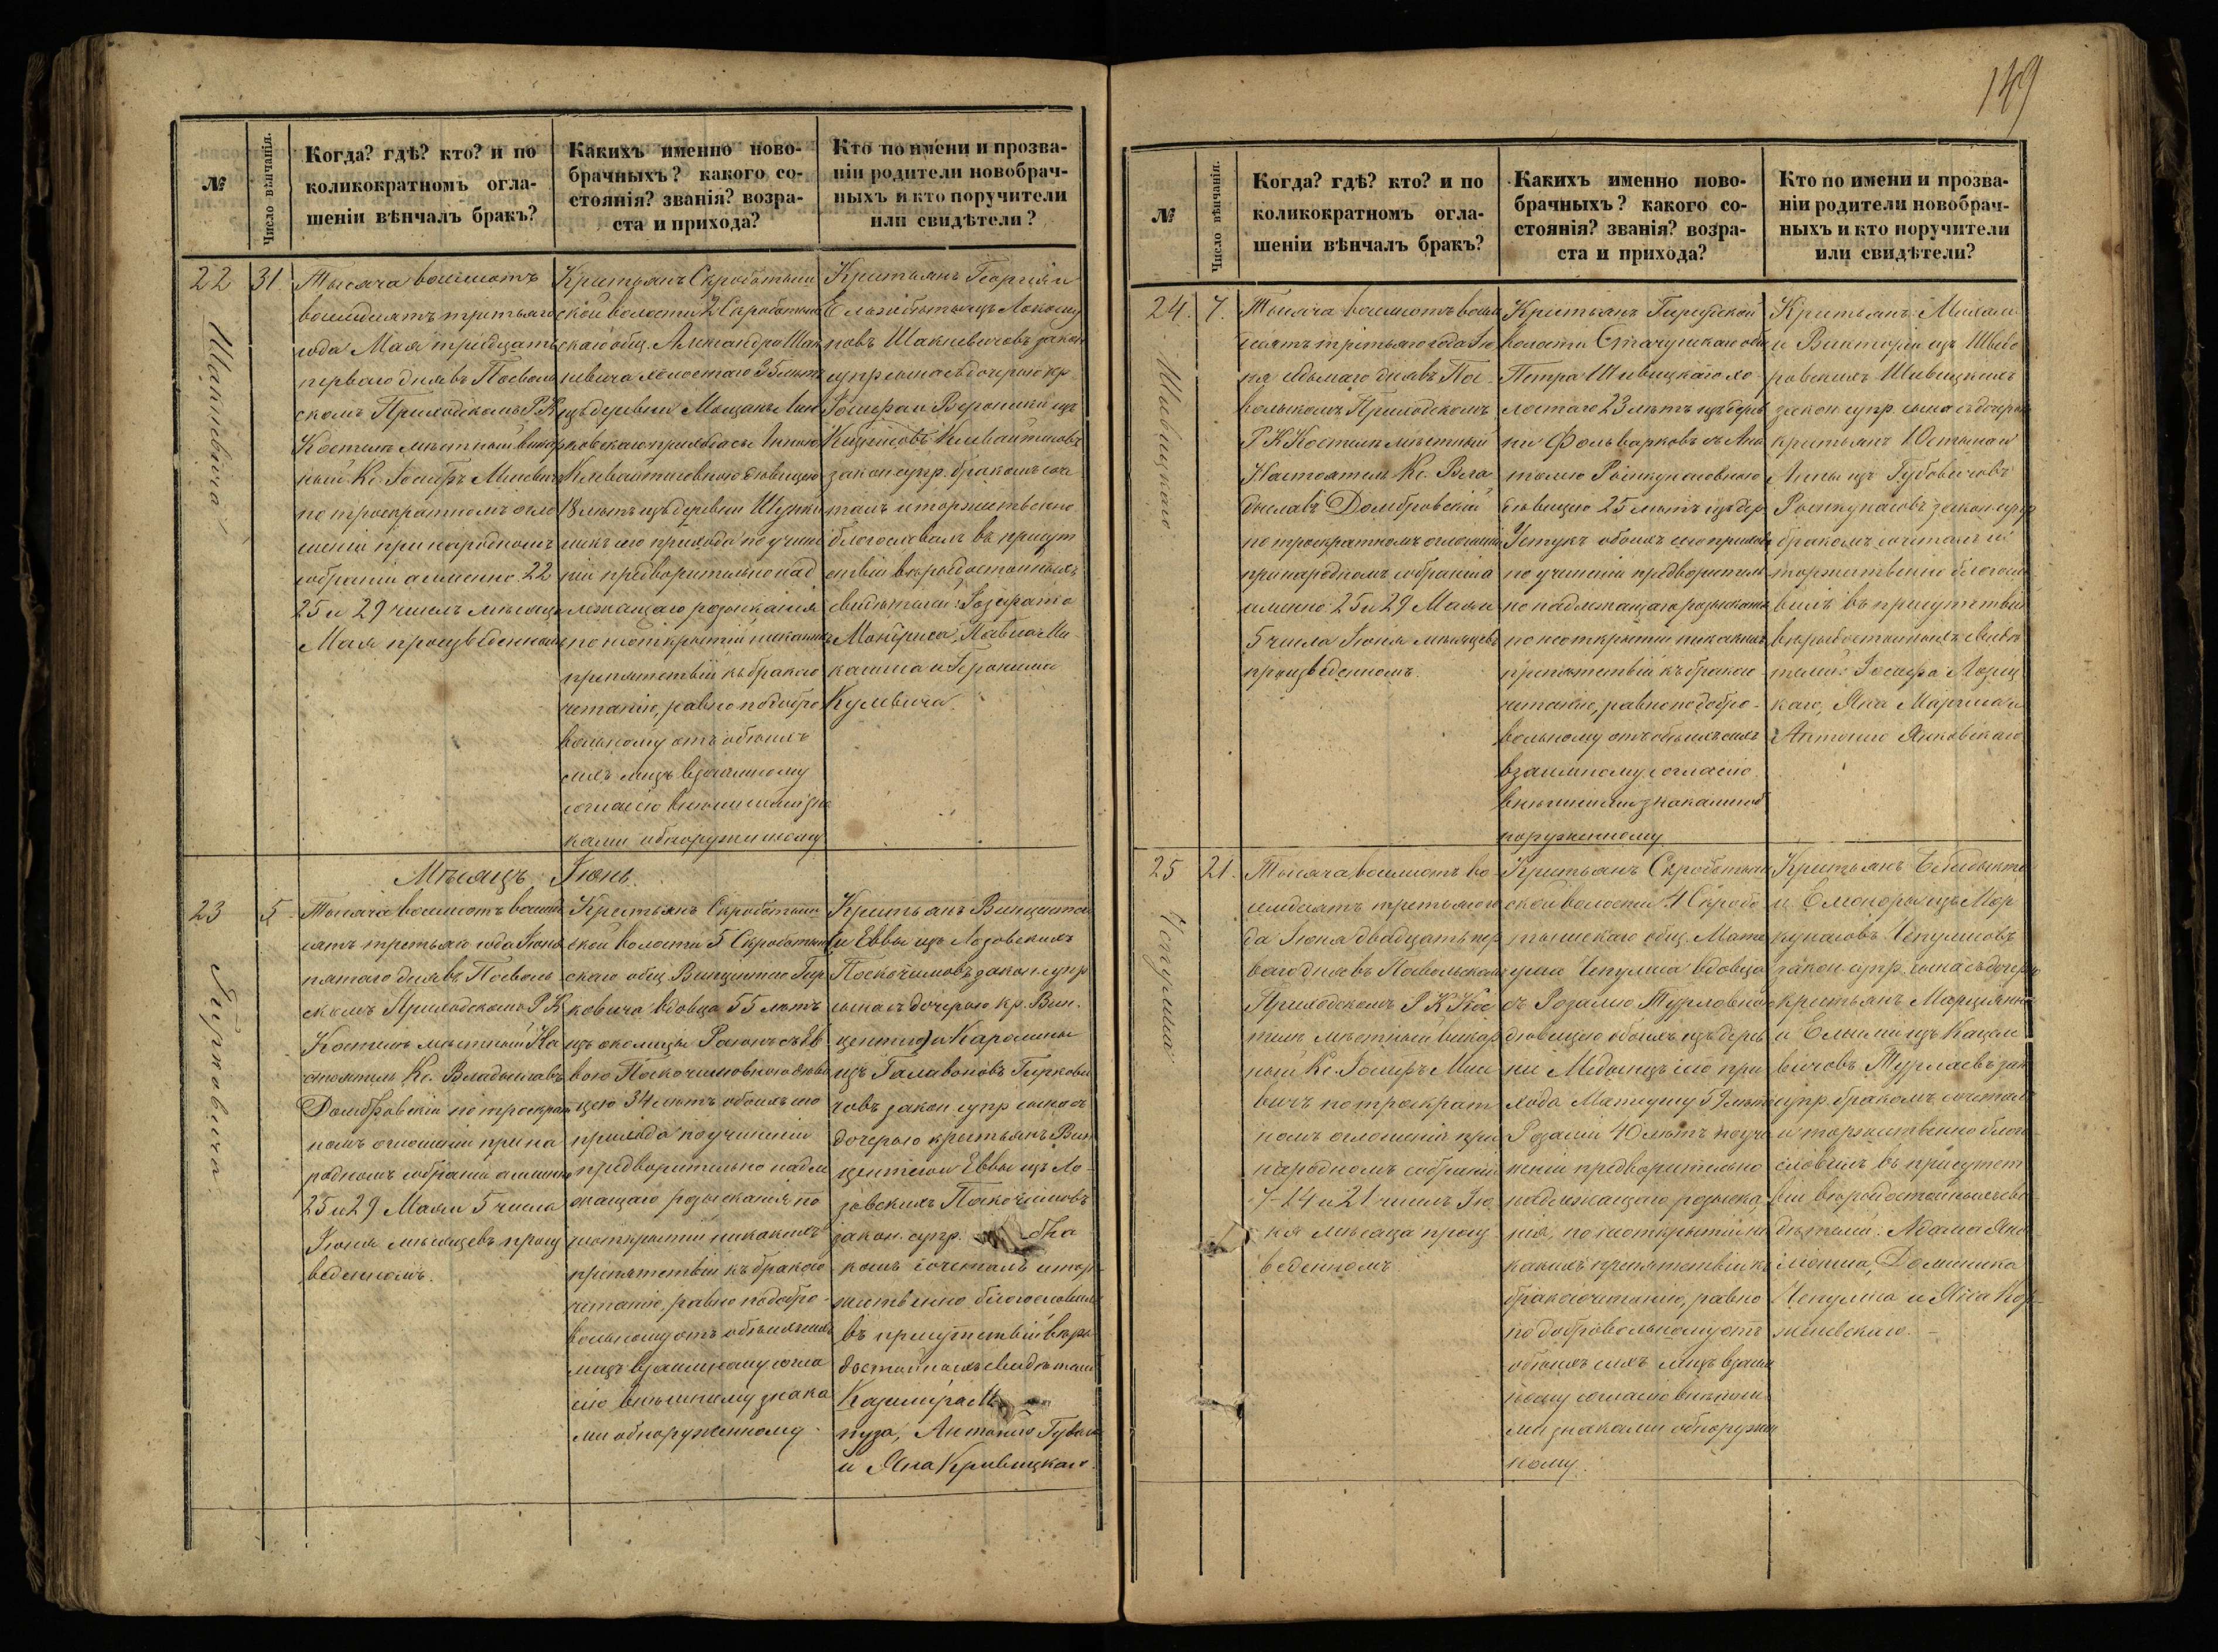 №
Число вѣнчанія.
Когда? гдѣ? кто? и по
коликократномъ огла-
шеніи вѣнчалъ бракъ?
Какихъ именно ново-
брачныхъ? какого со-
стоянія? званія? возра-
ста и прихода?
Кто по имени и прозва-
ніи родители новобрач-
ныхъ и кто поручители
или свидѣтели?
22
31
Шакневича
Тысяча восемьсотъ
восемдесятъ третьяго
года Мая тридцать
перваго дня въ Поеволь
скомъ Приходскомъ Р К
Костелѣ мѣстный викар
ный Кс. Іосифъ
по троекратномъ огла
шеніи при народномъ
собраніи а именно 22
25 и 29 чиселъ мѣсяца
Мая произведенномъ
Крестьянъ Скроботыш
ской волости 2 Скроботыш
скаго общ. Александра Шак
невича холостаго 35 лѣтъ
изъ деревни
прихода съ Анною
девицею
18 лѣтъ изъ деревни
сего прихода по учине
ніи предворительно над
лежащаго розысканія
по неоткрытіи никакихъ
препятствій къ бракосо
четанію, равно по добро
вольному отъ обоихъ
сихъ лицъ взаимному
согласію внешними зна
ками обнаруженному
Крестьянъ Георгія и
Ельжбеты изъ
Шакневичовъ закон
супр сына съ дочерью кр.
Іосифа и Вероники изъ
закон. супр. бракомъ соче
талъ и торжественно
благословилъ въ присут
ствіи вѣродостойныхъ
свидѣтелей:
Павла Ми
и Іеронима
Кулевича.
Мѣсяцъ Іюнь.
23
5
Гирковича
Тысяча восемьсотъ восемде
сятъ третьяго года Іюня
пятаго дня въ Поеволь
скомъ Приходскомъ Р К
Костелѣ мѣстный На
стоятель Кс. Владыславъ
Домбровскій по троекрат
номъ оглашеніи при на
родномъ собраніи а именно
25 и 29 Мая и 5 числа
Іюня мѣсяцевъ произ
веденномъ.
Крестьянъ Скроботыш
ской волости 5 Скроботыш
скаго общ Винцентаго Гир
ковича вдовца 55 лѣтъ
изъ околицы съ Ев
вою девы
цею 34 лѣтъ обоихъ сего
прихода по учиненіи
предворительно надле
жащаго розысканія по
неоткрытіи никакихъ
препятствій къ бракосо
четанію, равно по добро
вольному отъ обоихъ сихъ
лицъ взаимному согла
сію внѣшному знака
ми обнаруженному.
Крестьянъ Винцентаго
и Еввы изъ Лозовскихъ
закон супр
сына съ дочерью кр. Вин
центаго и Каролины
изъ Гирков
човъ закон. супр сына съ
дочерью крестьянъ Вин
центаго и Еввы изъ Ло
зовскихъ
закон. супр. бра
комъ сочеталъ и тор
жественно благословилъ
въ присутствіи вѣро
достойныхъ свидѣтелей
Казимира
Антонія
и Яна Кривицкаго.
149
№
Число вѣнчанія.
Когда? гдѣ? кто? и по
коликократномъ огла-
шеніи вѣнчалъ бракъ?
Какихъ именно ново-
брачныхъ? какого со-
стоянія? званія? возра-
ста и прихода?
Кто по имени и прозва-
ніи родители новобрач-
ныхъ и кто поручители
или свидѣтели?
24.
7.
Шивицкаго
Тысяча восемьсотъ восем
десятъ третьяго года Ію
ня седьмаго дня въ Пое
вольскомъ Приходскомъ
Р К Костелѣ мѣстный
Настоятель Кс. Вла
дыславъ Домбровскій
по троекратномъ оглашеніи
при народномъ собраніи а
именно 25 и 29 Мая и
5 числа Іюня мѣсяцевъ
произведенномъ.
Крестьянъ
волости общ
Петра Шивицкаго хо
лостаго 23 лѣтъ изъ дерев
ни Фольварковъ съ Ана
толею
девицею 25 лѣтъ изъ дер
обоихъ сего прихода
по учиненіи предворитель
но надлежащаго розысканія
по неоткрытіи никакихъ
препятствій къ бракосо
четанію, равно по добро-
вольному отъ обоихъ сихъ
взаимному согласію
внѣшними знаками об
наруженному
Крестьянъ: Михаила
и Викторіи изъ
Шивицкихъ
закон супр. сына съ дочерью
крестьянъ Юстына и
Анны изъ
закон. супр
бракомъ сочеталъ и
торжественно благосло
вилъ въ присутствіи
вѣродостойныхъ свидѣ
телей: Іосифа
Яна и
Антонія Янковскаго
25
21.
Чепулиса
Тысяча восемьсотъ во
семдесятъ третьяго го
да Іюня двадцать пер
ваго дня въ Поевольскомъ
Приходскомъ Р К Кос
телѣ мѣстный викар
ный Кс. Іосифъ
по троекрат
номъ оглашеніи при
народномъ собраніи
7-14 и 21 чиселъ Ію
ня мѣсяца произ
веденномъ.
Крестьянъ Скроботыш
ской волости 4 Скробо
тышскаго общ. Мате
уша Чепулиса вдовца
съ Розаліею Турловною
девицею обоихъ изъ дерев
ни сего при
хода Матеушу 59 лѣтъ
Розаліи 40 лѣтъ по учи
неніи предворительно
надлежащаго розыска
нія, по неоткрытіи ни
какихъ препятствій къ
бракосочетанію, равно
по добровольному отъ
обоихъ сихъ лицъ взаим
ному согласію внѣшни
ми знаками обнаружен
ному.
Крестьянъ Бенедыкта
и Елеоноры изъ Мор
Чепулисовъ
закон. супр. сына съ дочерью
крестьянъ Марціяна
и изъ
закон
супр. бракомъ сочеталъ
и торжественно благо
словилъ въ присутст
віи вѣродостойныхъ сви
дѣтелей: Адама
Доминика
Чепулиса и Яна Кор